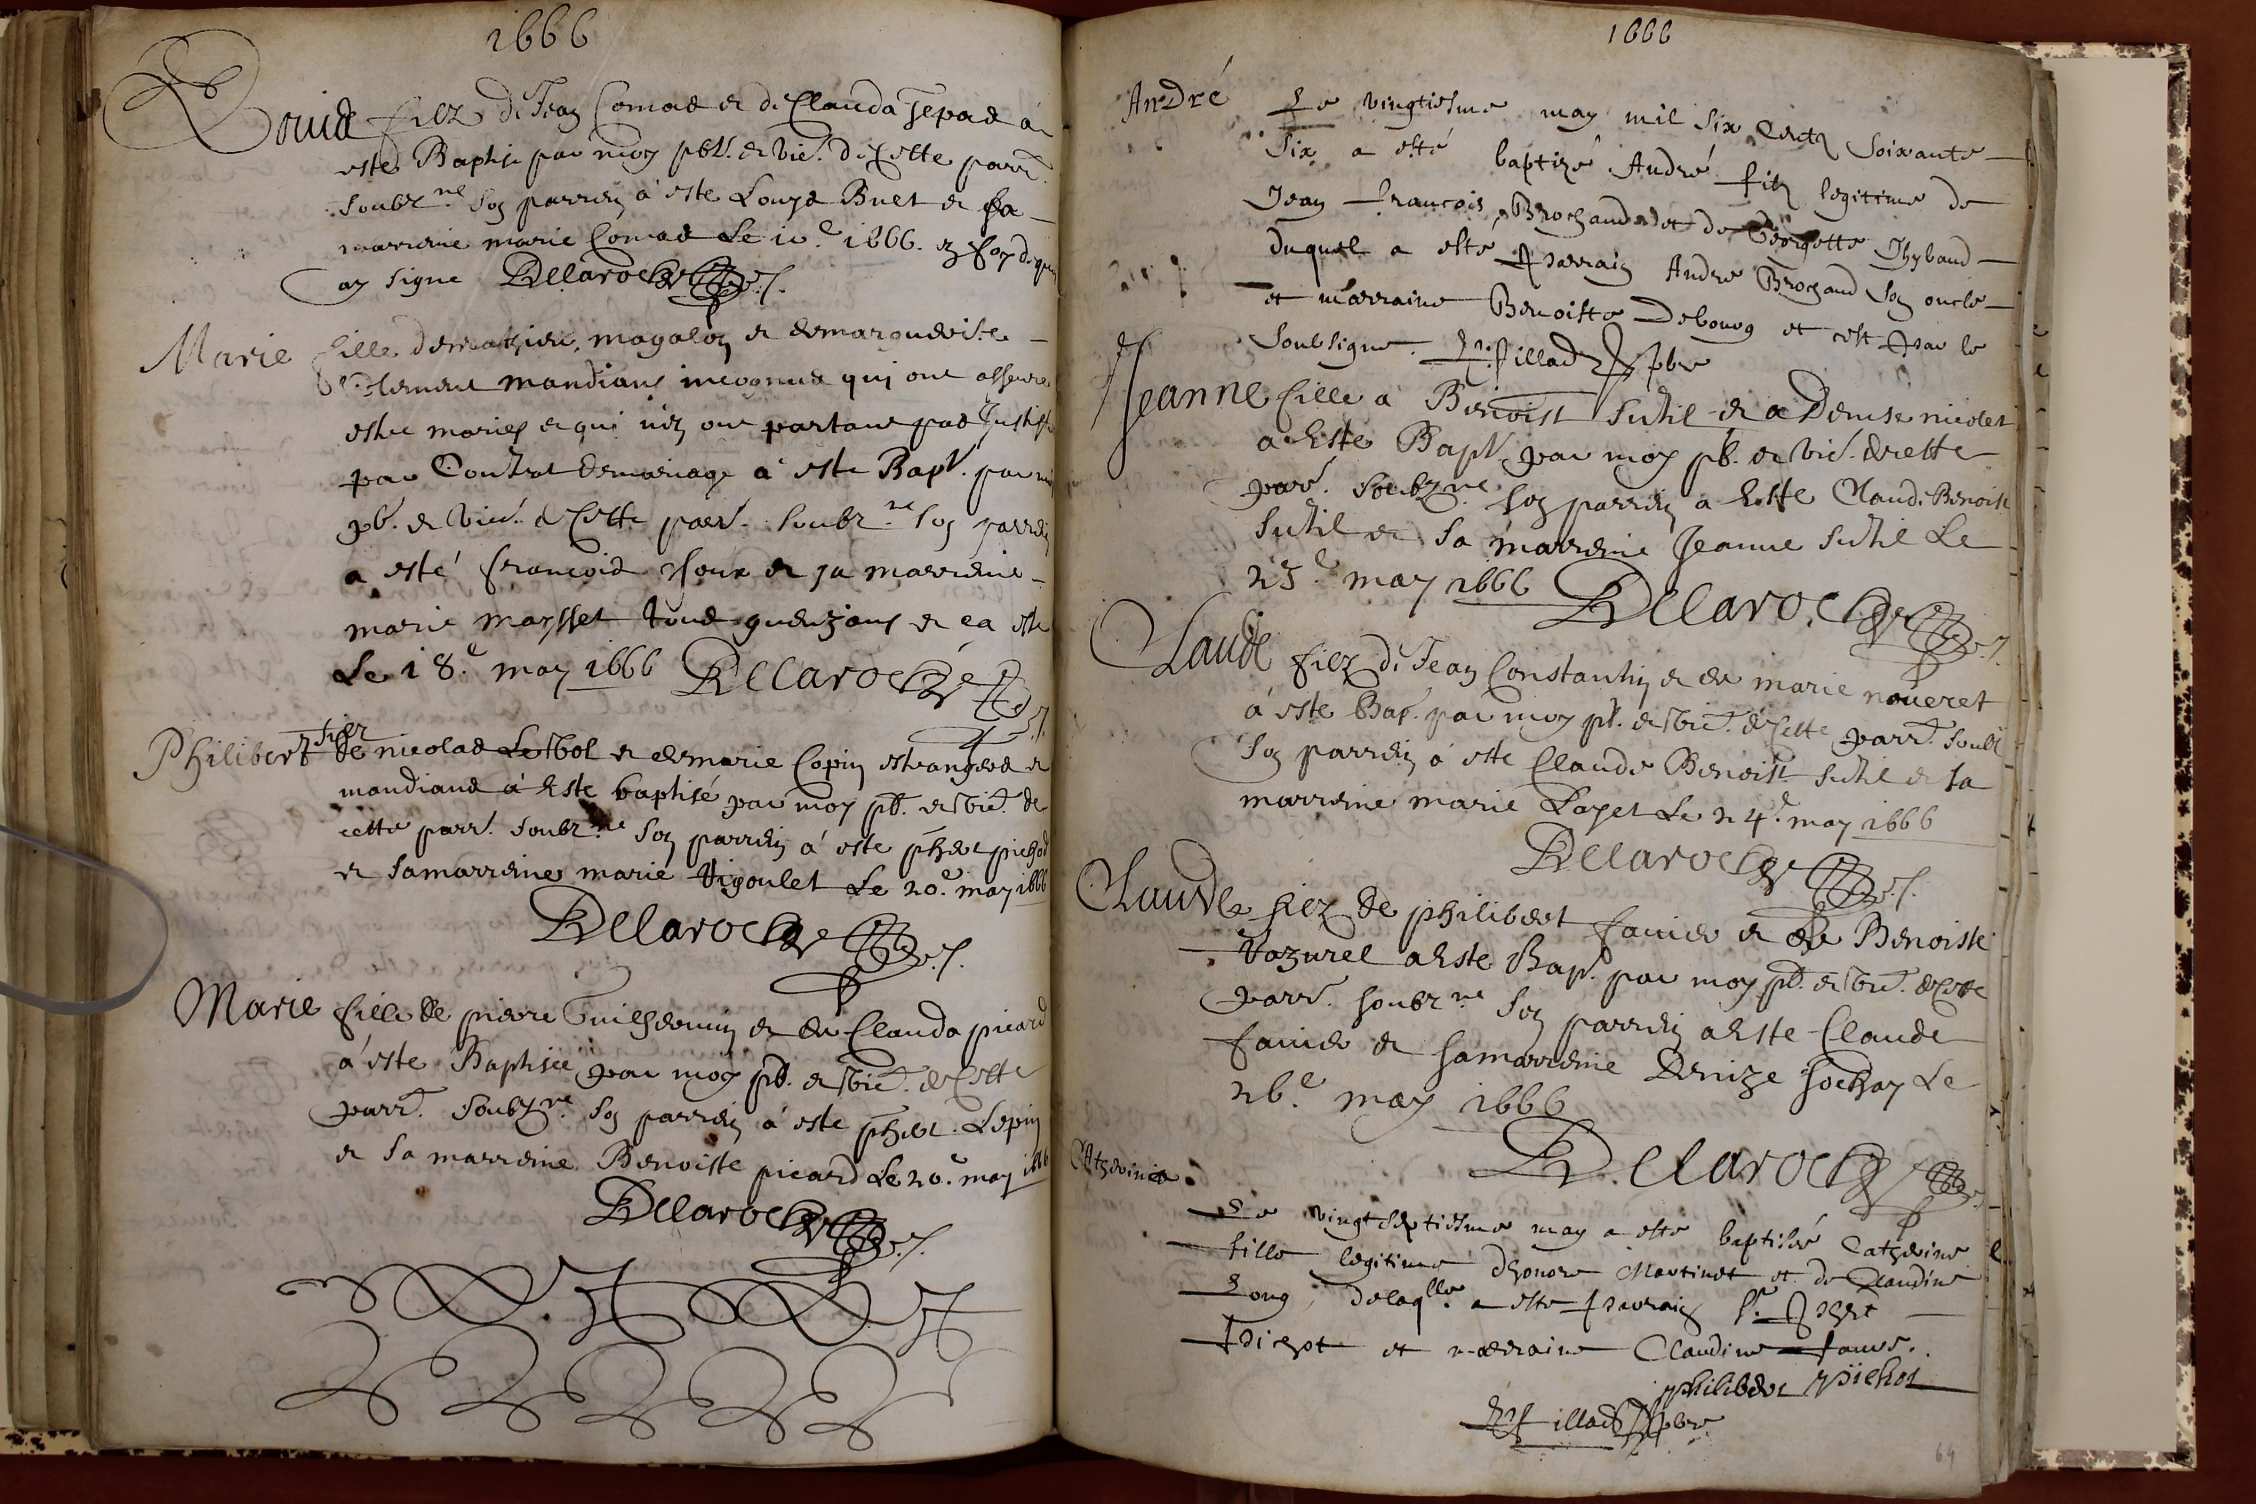 1666
Louis filz de Jean Comas et de Clauda Jepas à
este Baptise par moy pbt. et vic. de cette parr.
soubz.ne son parrein à este Louys Buet et sa
marreine marie Comas Le 10.e 1666. en foy de quoy
ay signe Delaroche
Marie fille de mathieu magalon et de marguerite
Clement mandians incognus qui ont asseure
estre mariés et qui n'en ont partant pas Justiffie
par Contrat de mariage à este Bapt. par moy
pb. et vic. de Cette parr. soubz.ne son parrein
a esté francois Roux et sa marreine
marie maysset tous gueuzans et ca este
Le 18.e may 1666 Delaroche
Philibert filz
de nicolas et de marie Copin estrangers et
mandians à Este baptisé par moy pb. et vic. de
cette parr. soubz.ne son parrein à este phbert pichot
et sa marreine marie Vigoulet Le 20.e may 1666
Delaroche
Marie fille de pierre Guilhermin et de Clauda picard
à este Baptisée par moy pb. et vic. de Cette
parr. soubz.ne son parrein à este phber. Lepin
et sa marreine Benoiste picard Le 20.e may 1666
Delaroche
1666
André Le vingtiesme may mil six Centz soixante
six a esté baptizé André filz legitime de
Jean francois Brochand et de Georgette Thybaud
duquel a esté parrain Andre Brochand son oncle
et marraine Benoiste Debourg et c'est par le
soubsigne. pbre
Jeanne fille a Benoist Sutil et a Denise nicolet
a Este Bapt. par moy pb. et vic. de cette
parr. soubz.ne son parrein a Este Claude Benoist
Sutil et sa marreine Jeanne Sutil Le
23.e may 1666 Delaroche
Claude filz de Jean Constantin et de marie noueret
à este Bap. par moy pb. et vic. de Cette parr. soubz.
son parrein à este Claude Benoist Sutil et sa
marreine marie Payet Le 24.e may 1666
Delaroche
Claude filz de philibert fauier et de Benoiste
Vazurel a Este Bap. par moy pb. et vic. de Cette
parr. soubz.ne son parrein a Este Claude
fauier et sa marreine Denize Sochay Le
26.e may 1666
Delaroche
Catherine
Le vingtseptiesme may a este baptisée Catherine
fille legitime d'honore Martinet et de Claudine
Long, de laq.lle a este parrain S.r phbt
Pichot et marraine Claudine faure.
philibert pichot
pbre
64